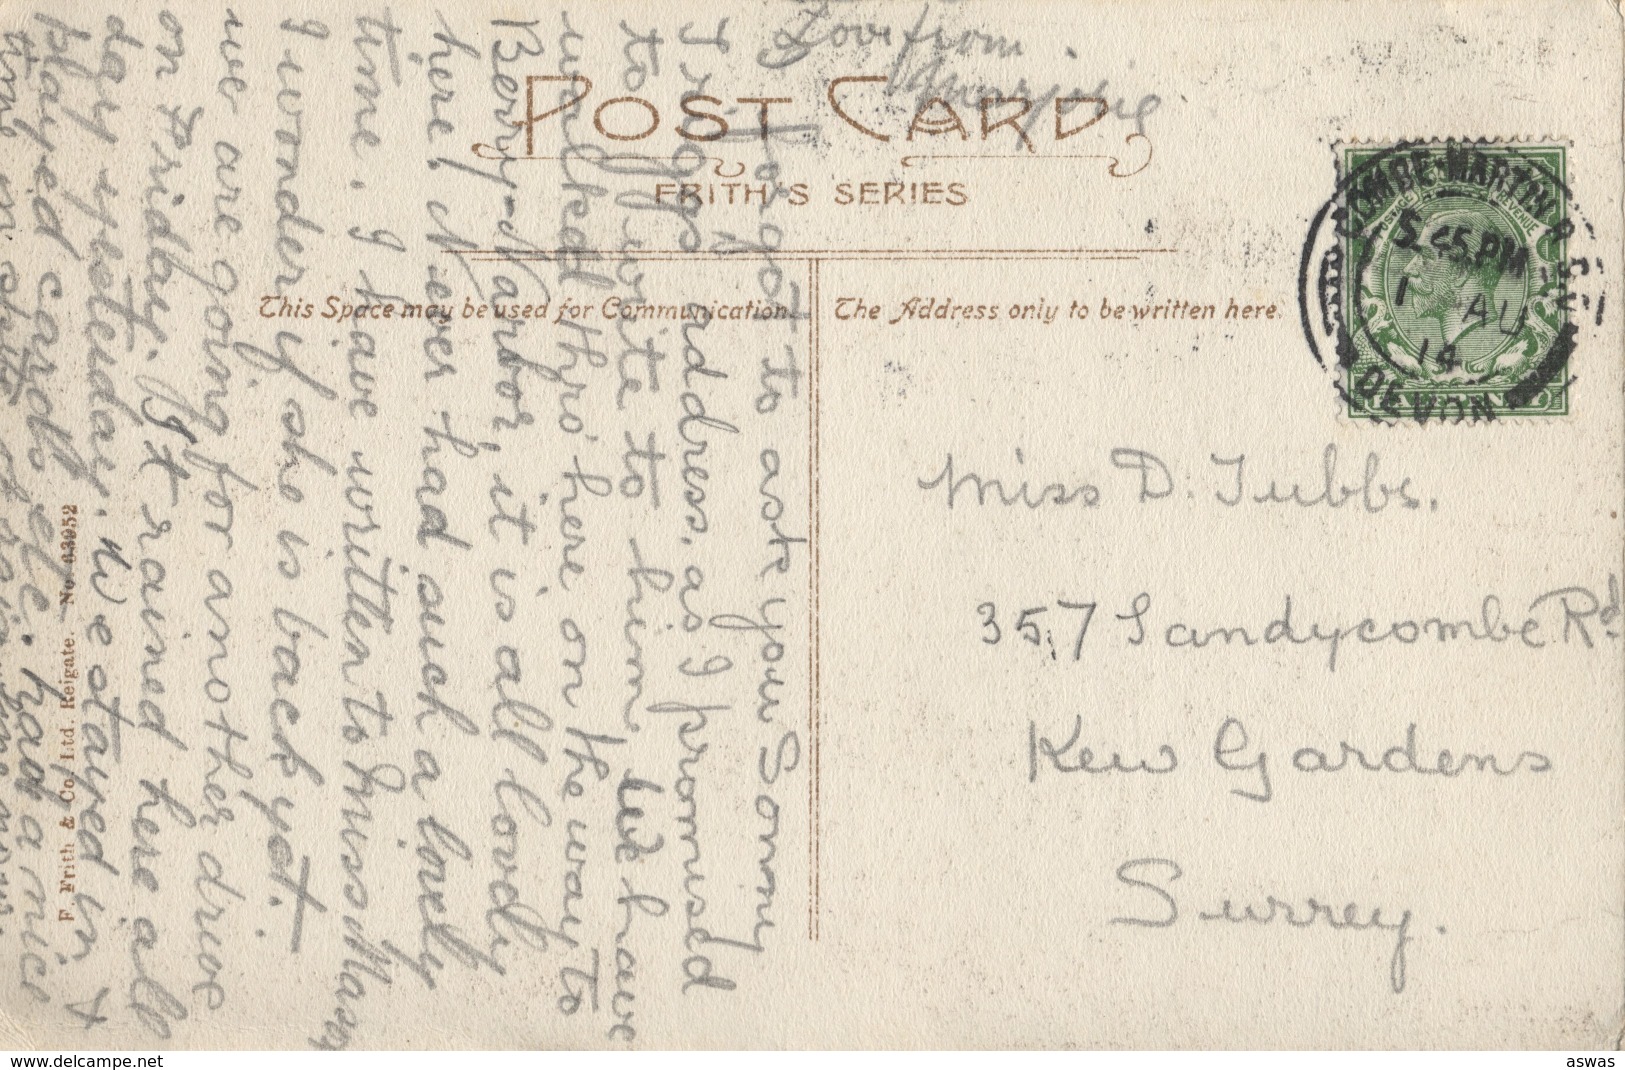 POST CARD
FRITH'S SERIES
This Space may be used for Communication.
The Address only to be written here.
COMBE MARTIN R.S.O.
5.45 PM
1 AU
14
DEVON
POSTAGE
REVENUE
Miss D. Tubbs.
357 Sandycombe Rd.
Kew Gardens
Surrey.
I forgot to ask you Sonny
Triggs address, as I promised
to write to him, we have
walked thro' here on the way to
Berry-Narbor, it is all lovely
here, I never had such a lovely
time. I have written to Miss Mason
I wonder if she is back yet.
we are going for another drive
on Friday. It rained here all
day yesterday. We stayed in &
played cards etc. had a nice
time in spite of rain
Love from
Marjorie
F. Frith & Co. Ltd. Reigate. No. 63952
delcampe.net
aswas